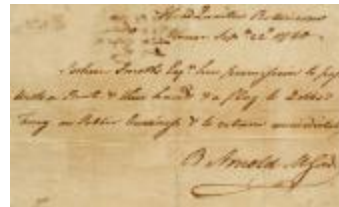 Head Quarters Robinsons
House Sepr 22d 1780
Joshua Smith Esqr has permission to pass
with a Boat & three hands & a flag to Dobbs
Ferry on Public business & to return immediately
B Arnold M Genl